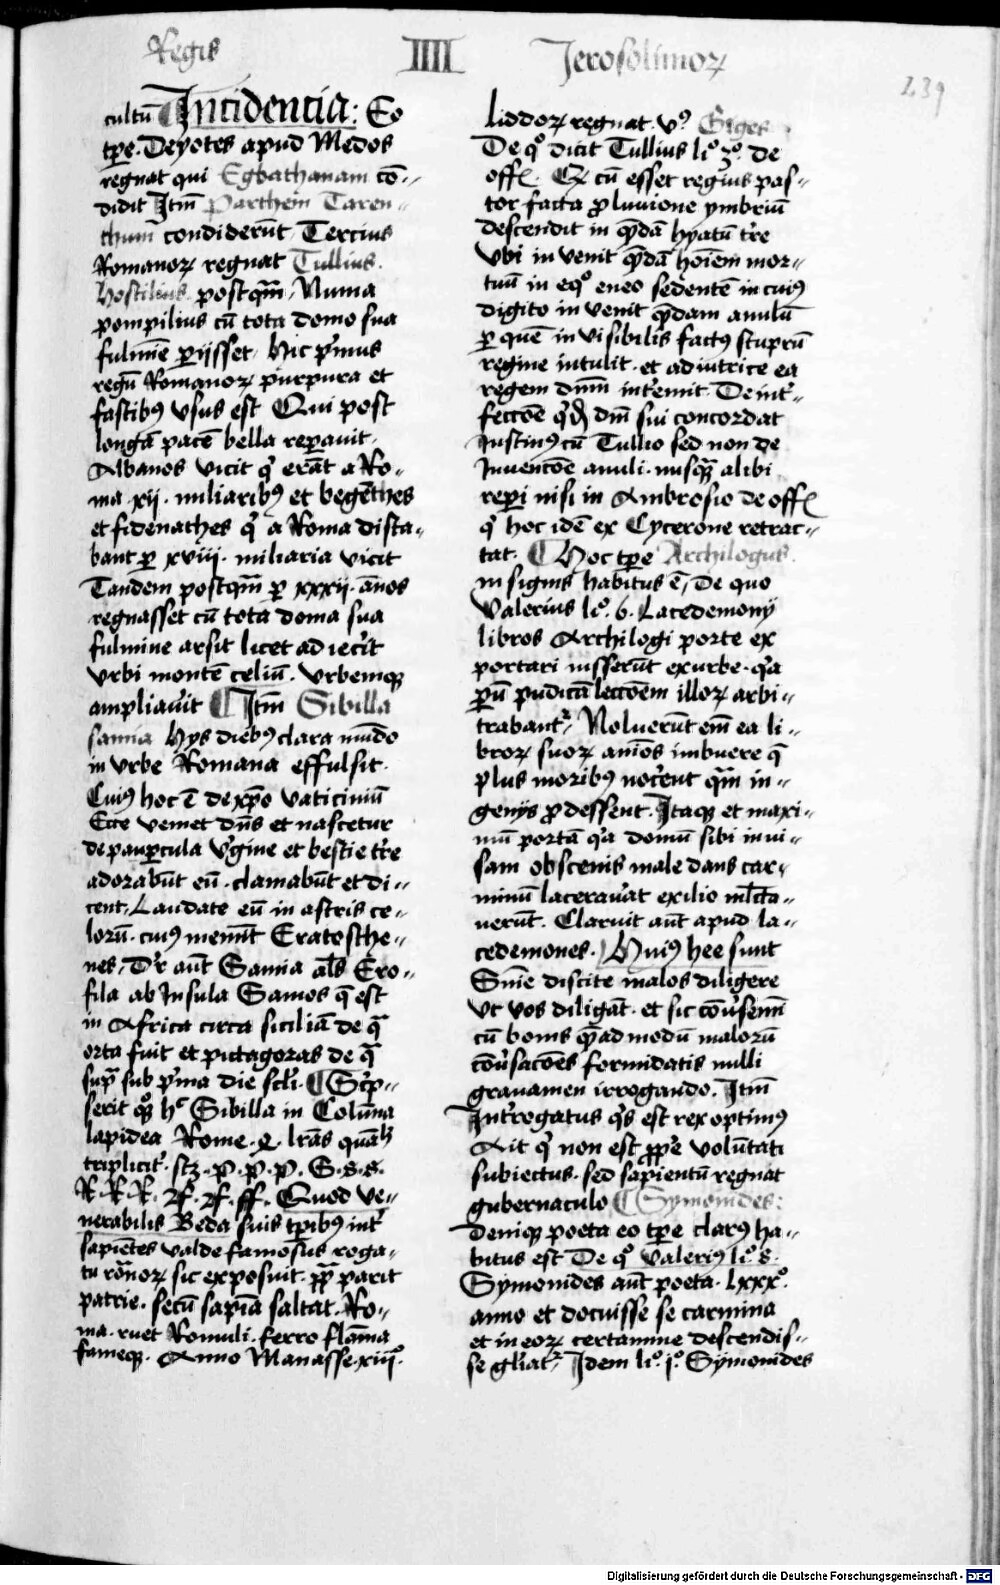 Regis IIII Jerosolimoꝝ
239
cultū Incidencia: Eo
tꝑe. Deyotes apud Medos
regnat qui Egbathanam cō-
didit Itm̄ Parthem Taren-
thum condiderūt Tercius
Romanoꝝ regnat Tullius
Hostilius postqm̄ Numa
pompilius cū tota domo sua
fulmīe ꝑijsset. Hic pͥmus
regū Romanoꝝ purpura et
fastibꝰ vsus est Qui post
longā pacē bella reꝑauit.
Albanos vicit qͥ erāt a Ro-
ma xij miliaribꝰ et begēthes
et fidenathes qͥ a Roma dista-
bant ꝑ xviij miliaria vicit
Tandem postqm̄ ꝑ xxxij. ānos
regnasset cū tota doma sua
fulmine arsit licet adiecͥit
vrbi montē celiū. vrbemqꝫ
ampliauit ¶ Itm̄ Sibilla
samia hys diebꝰ clara mūdo
in vrbe Romana effulsit.
Cuiꝰ hoc ē de xp̄o vaticiniū
Ecce veniet dn̄s et nascetur
de pauꝑcula vͥgine et bestie tͥre
adorabūt eū. clamabūt et di-
cent, Laudate eū in astris ce-
lorū. cuiꝰ memīt Eratosthe-
nes, Dͬ aūt Samia al̄s Ero-
fila ab Insula Samos q̄ est
in Africa circa siciliā de qᷓ
orta fuit et pictagoras de qᷓ
supᷓ sub pͥma die scl̄i. ¶ Scͥp-
serit qꝫ hͨ Sibilla in Colūna
lapidea Rome. lr̄as
triplicitͬ. scꝫ. p. p. p. S. s. s.
R. R. R. ff. ff. ff. Quod ve-
nerabilis Beda suis tꝑibꝰ intͬ
sapiētes valde famosus roga-
tu rōnoꝝ sic exposuit. pp̄ parit
patrie. secū sapīa saltat. Ro-
ma. ruet Romuli. ferro flāma
fameqꝫ. Anno Manasse. xiijͦ.
lidoꝝ regnat. vꝰ Giges
De qͦ dicit Tullius liͦ. 3ͦ. de
off̄. Qͥ cū esset regius pas-
tor facta ꝓluuione ymbriū
descendit in qͣdā hyatū tͬre
vbi inuenit qͣdā hoīem mor-
tuū in eqͦ eneo sedentē in cuiꝰ
digito inuenit qͣdam anulū
ꝑ quē inuisibilis factꝰ stuprū
regine intulit. et adiutrice ea
regem dnm̄ intͬemit. De intͬ-
fectōe dn̄i sui concordat
Justinꝰ cū Tullio sed non de
Inuentōe anuli. nusqᷓ alibi
reꝑi nisi in Ambrosio de off̄
qͥ hoc idē ex Cycerone retrac-
tat. ¶ Hoc tꝑe Archilogus
insignis habitus ē, De quo
Valerius lͦi. 6. Lacedemonij
libros Archilogi porte ex
portari iusserūt ex vrbe. qͥa
ꝑū pudicā lectōem illoꝝ arbi-
trabantͬ, Noluerūt em̄ ea li-
broꝝ suoꝝ animos imbuere q̄
plus moribꝰ nocͬent qm̄ in-
genijs ꝓdessent. Itaqꝫ et maxi-
mū portā qͥa domū sibi inui-
sam obscenis male dans car-
minū laceraūat exilio ml̄ta-
uerūt. Claruit aūt apud la-
cedemones. Huiꝰ hee sunt
Snīe discite malos diligere
vt vos diligāt. et sic cōuͥsemī
cū bonis qͣadmodū malorū
cōuͥsacōes formidatis nulli
grauamen irrogando. Itm̄
Intͬrogatus qͥs est rex optimꝰ
Ait qͥ non est ꝓpͥe volūtati
subiectus. sed sapientū regnat
gubernaculo ¶ Symonides:
Deniqꝫ poeta eo tꝑe clarꝰ ha-
bitus est De qͦ Valeriꝰ liͦ. 8.
Symonides aūt poeta. lxxxͦ.
anno et docuisse se carmina
et in eoꝝ certamine descendis-
se gl̄iatͬ, Idem liͦ. jͦ. Symonides
Digitalisierung gefördert durch die Deutsche Forschungsgemeinschaft - DFG